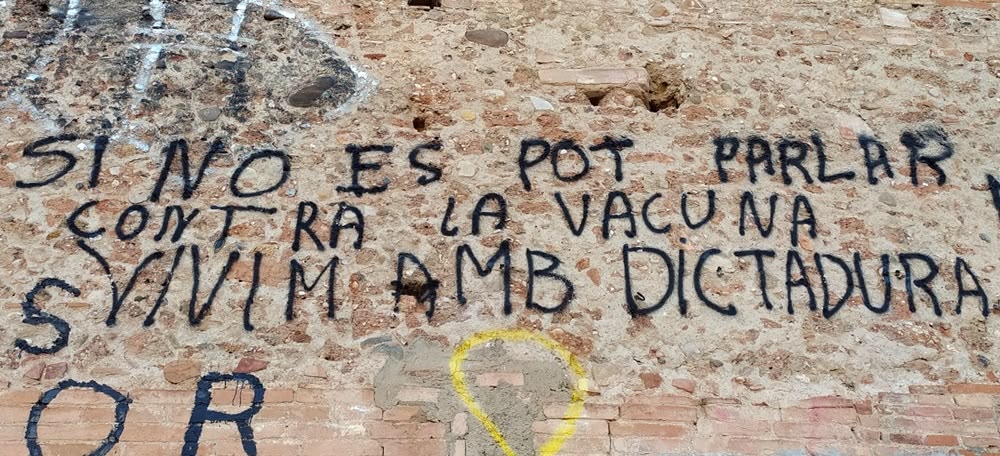 SI NO ES POT PARLAR
CONTRA LA VACUNA
VIVIM AMB DICTADURA
S
OR